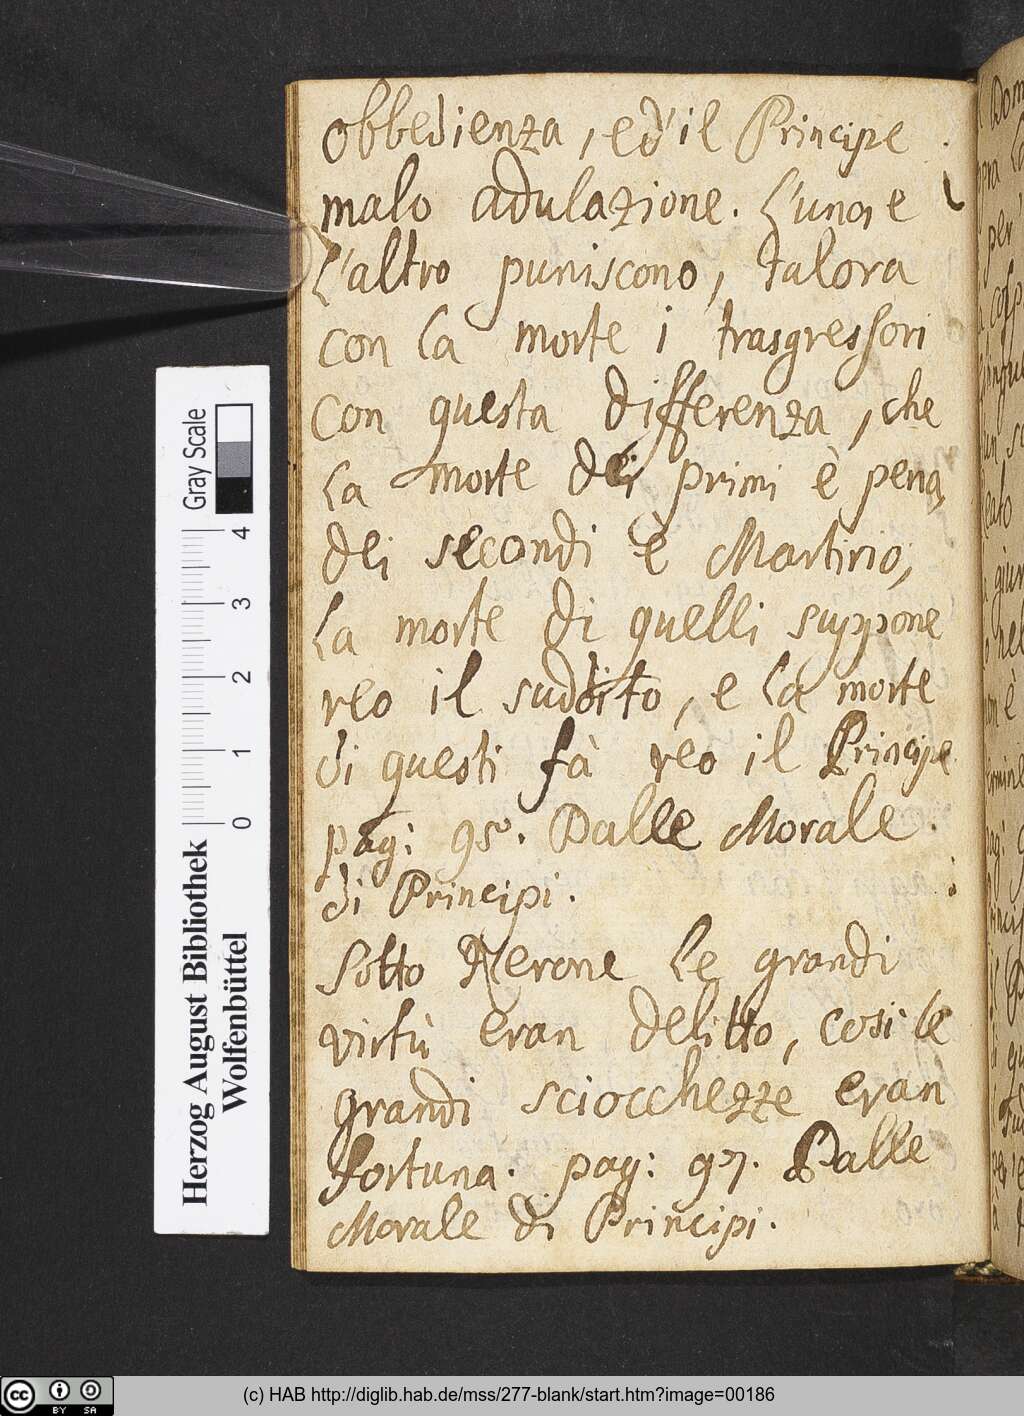 obbedienza, ed' il Principe
malo adulazione. L'una e
L'altro puniscono, talora
con la morte i trasgressori
con questa differenza, che
la morte dei primi è pena,
dei secondi è Martirio;
La morte di quelli suppone
reo il suddito, e la morte
di questi fà reo il Principe
pag: 95. Dalle Morale
di Principi.
Sotto Nerone le grandi
virtù eran delitto, cosi le
grandi sciocchezze eran
fortuna. pag: 97. Dalle
Morale di Principi.
Gray Scale
4
3
2
1
0
Herzog August Bibliothek
Wolfenbüttel
cc BY SA
(c) HAB http://diglib.hab.de/mss/277-blank/start.htm?image=00186